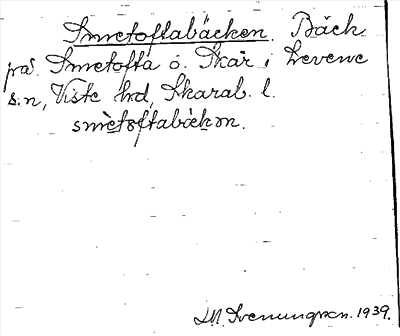 Smetoftabäcken. Bäck
på Smetofta o. Skår i Levene
s:n, Viste hrd, Skarab. l.
smètoftabèkɷn.
J.M. Svenungsson. 1939.